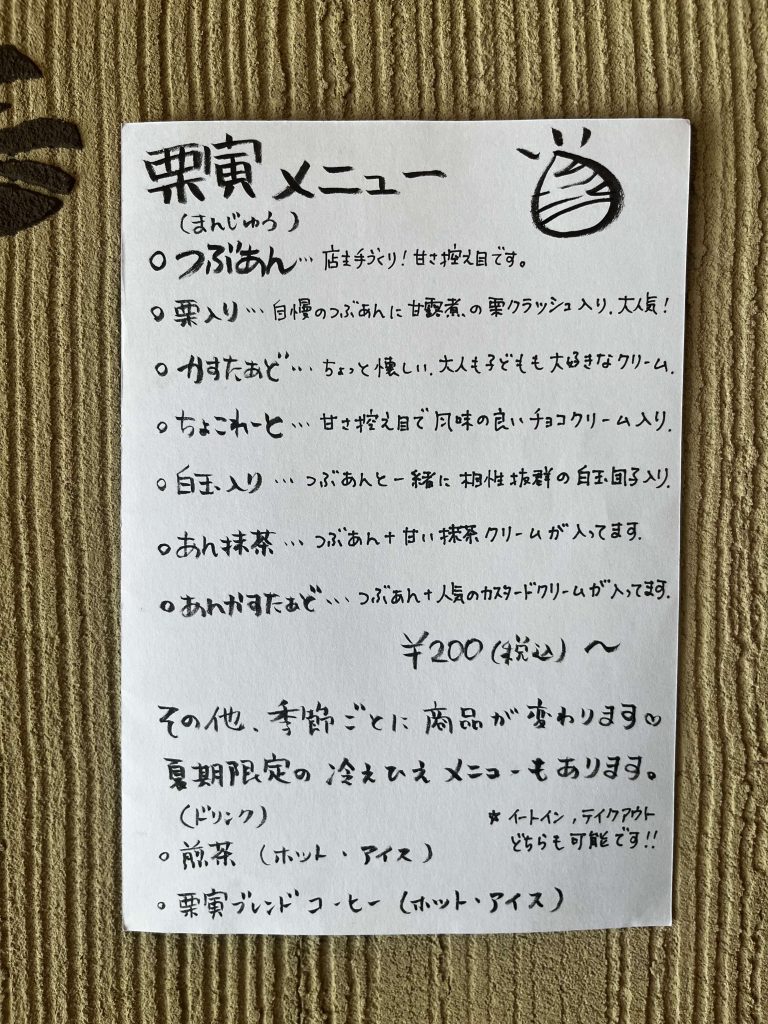 栗寅メニュー
(まんじゅう)
○つぶあん…店主手づくり!甘さ控え目です。
○栗入り…自慢のつぶあんに甘露煮の栗クラッシュ入り。大人気!
○かすたぁど…ちょっと懐しい。大人も子どもも大好きなクリーム。
○ちょこれーと…甘さ控え目で風味の良いチョコクリーム入り。
○白玉入り…つぶあんと一緒に相性抜群の白玉団子入り。
○あん抹茶…つぶあん+甘い抹茶クリームが入ってます。
○あんかすたぁど…つぶあん+人気のカスタードクリームが入ってます。
¥200(税込)〜
その他、季節ごとに商品が変わります♡
夏期限定の冷えひえメニューもあります。
(ドリンク)
☆イートイン,テイクアウト
どちらも可能です!!
○煎茶(ホット・アイス)
○栗寅ブレンドコーヒー(ホット・アイス)